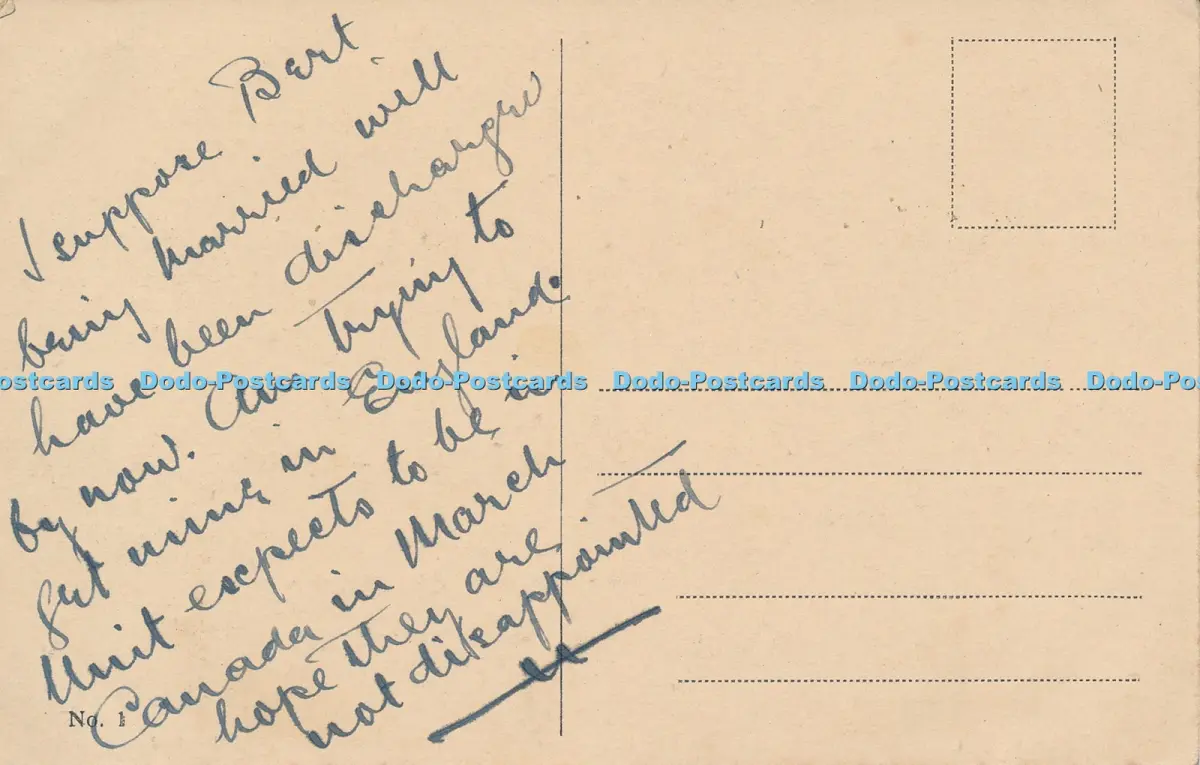 I suppose Bert
being married will
have been discharged
by now. Am trying to
get mine in England.
Unit expects to be in
Canada in March
hope they are
not disappointed
No. 1
ostcards Dodo-Postcards Dodo-Postcards Dodo-Postcards Dodo-Postcards Dodo-Po